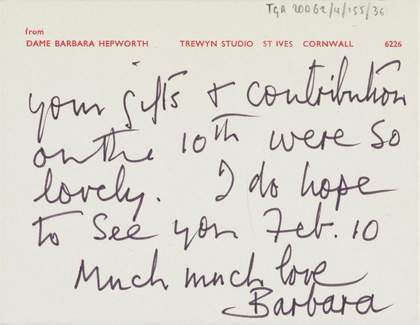 TGA 20062/4/155/36
from
DAME BARBARA HEPWORTH TREWYN STUDIO ST IVES CORNWALL 6226
your gifts + contribution
on the 10th were so
lovely. I do hope
to see you Feb. 10
Much much love
Barbara